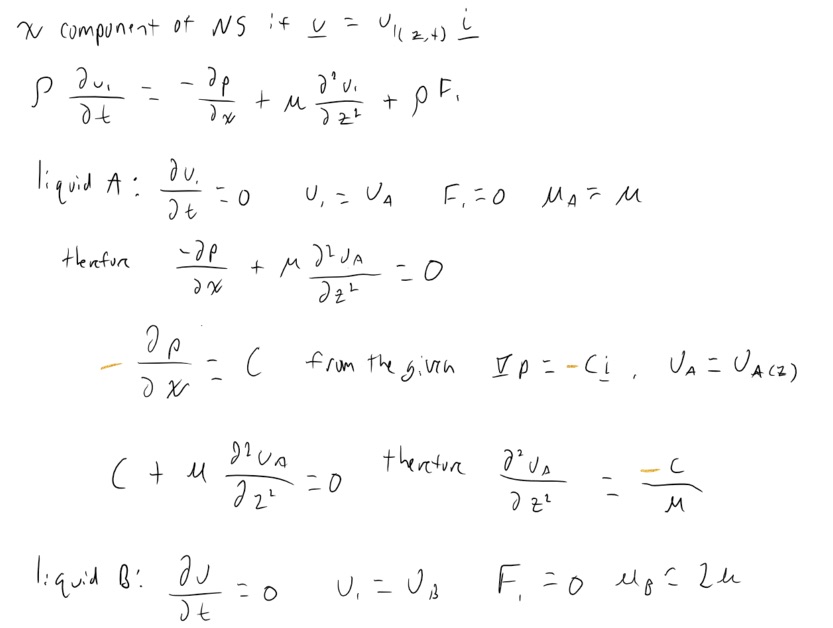 x component of NS if u = u₁(z,t) i
ρ ∂u₁/∂t = -∂p/∂x + μ ∂²u₁/∂z² + ρF₁
liquid A: ∂u₁/∂t = 0 u₁ = u_A F₁ = 0 μ_A = μ
therefore -∂p/∂x + μ ∂²u_A/∂z² = 0
- ∂p/∂x = C from the given ∇p = -Ci, u_A = u_A(z)
C + μ ∂²u_A/∂z² = 0 therefore ∂²u_A/∂z² = -C/μ
liquid B: ∂u/∂t = 0 u₁ = u_B F₁ = 0 μ_B = 2μ